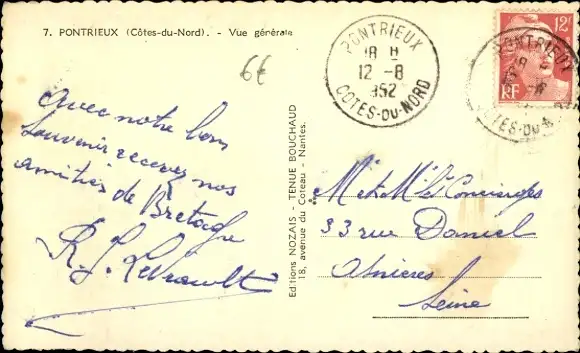 7. PONTRIEUX (Côtes-du-Nord). - Vue générale
6€
Avec notre bon
souvenir recevez nos
amitiés de Bretagne
R. J. Levrault
Editions NOZAIS - TENUE BOUCHAUD
18, avenue du Coteau - Nantes.
PONTRIEUX
18 H
12 - 8
1952
COTES-DU-NORD
12F
RF
PONTRIEUX
18 H
COTES-DU-N
M. et Mme Les Concierges
33 rue Daniel
Asnieres
Seine